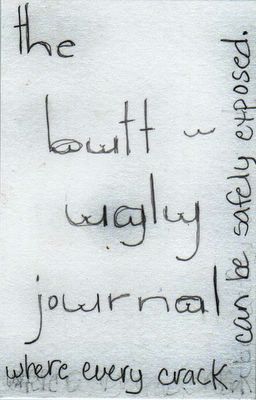 the
butt-
ugly
journal
where every crack
can be safely exposed.